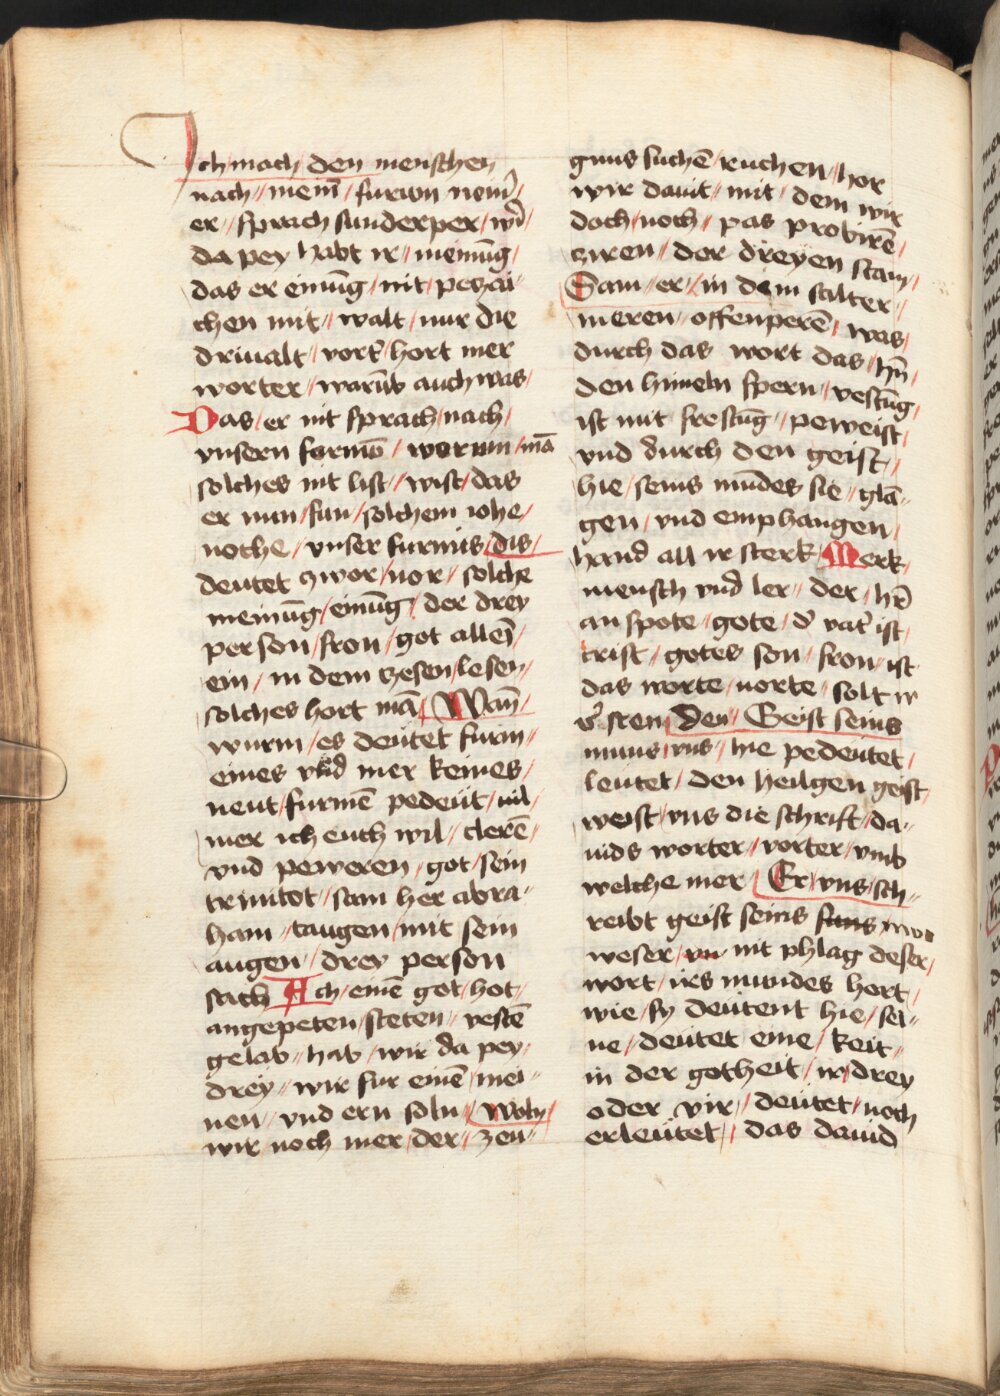 Ich / mach / den menschen
nach // meinē / furwn nem̄ /
er // sprach sunderper / wīd
da pey habt ir // meinūg /
das er einūg / nit / pezai //
chen mit // walt / nur die
driualt / vort̄ / hort mer
worter // warūb auch was /
Das / er nit sprach / nach /
vnsern formō / worum / mā
solches nit list // wist / das
er nun / fun / solchem iohe /
nothe / vnser furmis / dis /
deutet zwor / nor // solche
meinūg / einūg / der drey
person / fron / got allei ̄/
ein / in dem wesen / lesen /
solches hort mā / Wan̄ /
wurm / es deutet furm //
eines vnd mer keines /
neut / furmē pedeut̄ / nil /
mer ich euch wil // clerē /
vnd peweren / got / sein
trinitot / sam her abra //
ham // taugen / mit sein
augen / drey person
sach Ach / einē got / hot /
angepeten / steten // vestē
gelab // hab / wir da pey /
drey // wir fur einē / mei //
nen // vnd ern soln / Woln /
wir noch mer / der // zeu //
gnus suchē / ruchen / hor
wir dauit / mit / dem wir
doch / noch // pas probirē /
ziren // der dreyen stam /
Sam / er / in dem salter //
meren // offenperē / was /
durch das wort das / hn̄ /
den himeln spern / vestūg /
ist mit frestūg / peweist /
vnd durch den geist /
hie / seins mūdes sie / glā-
gen / vnd emphangen /
hand all ir sterk Merk /
mensch vnd ler // der / hr̄
an spote / gote / d' vat' ist /
crist / gotes son / fron / ist
das worte / norte / solt ir
v'sten / den / Geist seins
muns / vns / hie pedeutet /
leutet / den heilgen geist /
weist / vns die schrift / da //
uids worter // vorter / vmb
welche mer / Er / vns / sch //
reibt geist seins
weser / nit phlag deser /
wort / irs mundes hort /
wie / sy deutent hie / sei //
ne / deutet eine / keit //
in der gotheit / ir / drey
oder vir // deutet / noch
erleutet // das dauid